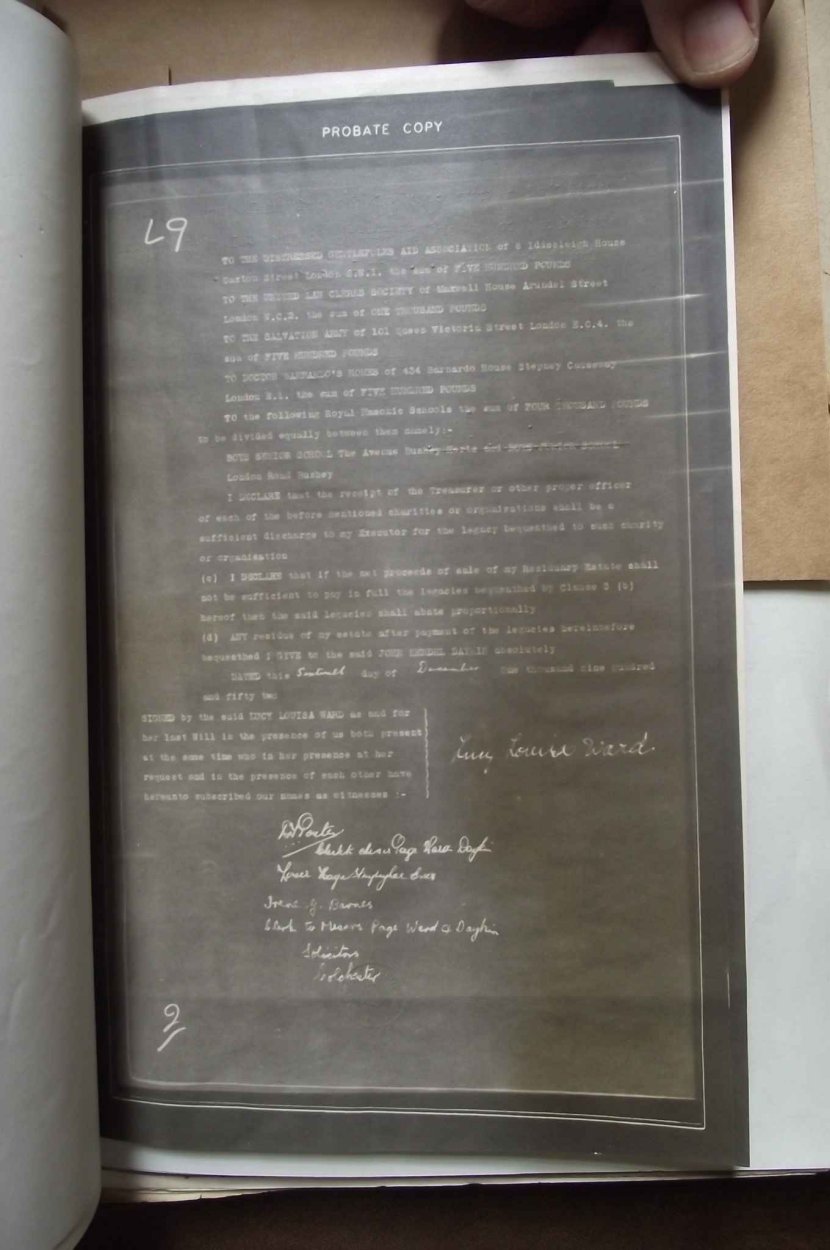 PROBATE COPY
L9
TO THE DISTRESSED GENTLEFOLKS AID ASSOCIATION of 8 Iddesleigh House
Caxton Street London S.W.1. the sum of FIVE HUNDRED POUNDS
TO THE UNITED LAW CLERKS SOCIETY of Maxwell House Arundel Street
London W.C.2. the sum of ONE THOUSAND POUNDS
TO THE SALVATION ARMY of 101 Queen Victoria Street London E.C.4. the
sum of FIVE HUNDRED POUNDS
TO DOCTOR BARNARDO'S HOMES of 454 Barnardo House Stepney Causeway
London E.1. the sum of FIVE HUNDRED POUNDS
TO the following Royal Masonic Schools the sum of FOUR THOUSAND POUNDS
to be divided equally between them namely:-
BOYS SENIOR SCHOOL The Avenue Bushey Herts and BOYS JUNIOR SCHOOL
London Road Bushey
I DECLARE that the receipt of the Treasurer or other proper officer
of each of the before mentioned charities or organisations shall be a
sufficient discharge to my Executor for the legacy bequeathed to such charity
or organisation
(c) I DECLARE that if the net proceeds of sale of my Residuary Estate shall
not be sufficient to pay in full the legacies bequeathed by Clause 3 (b)
hereof that the said legacies shall abate proportionally
(d) ANY residue of my estate after payment of the legacies hereinbefore
bequeathed I GIVE to the said JOHN DAYKIN absolutely
DATED this day of December One thousand nine hundred
and fifty two
SIGNED by the said LUCY LOUISA WARD as and for
her last Will in the presence of us both present
at the same time who in her presence at her
request and in the presence of each other have
hereunto subscribed our names as witnesses :-
Lucy Louisa Ward.
Porter
Page Ward Daykin
Irene J. Barnes
Clerk to Messrs Page Ward & Daykin
Solicitors
Colchester
2